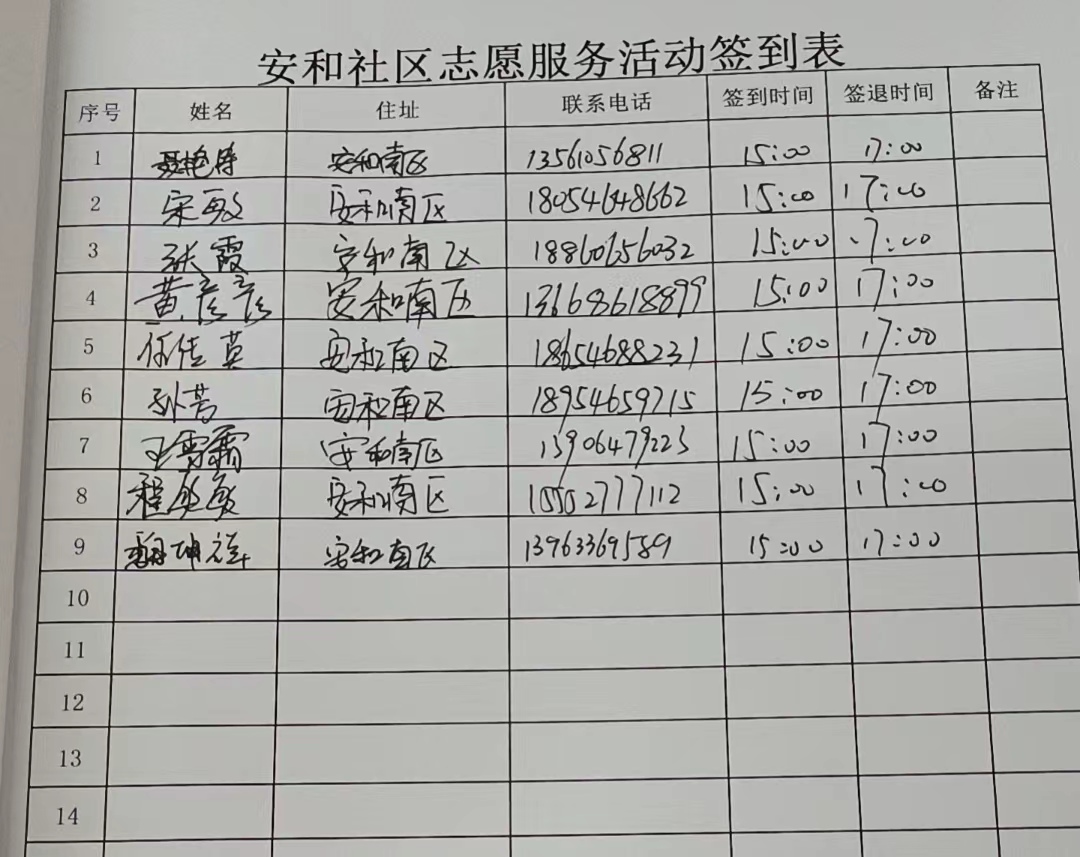 安和社区志愿服务活动签到表
序号 姓名 住址 联系电话 签到时间 签退时间 备注
1 安和南区 13561056811 15:00 17:00
2 宋敏 安和南区 18054648662 15:00 17:00
3 张霞 安和南区 18860656032 15:00 17:00
4 黄彦彦 安和南区 13668618899 15:00 17:00
5 任佳英 安和南区 18654688231 15:00 17:00
6 孙芳 安和南区 18954659715 15:00 17:00
7 王雪霜 安和南区 13906479223 15:00 17:00
8 程敏敏 安和南区 155502777112 15:00 17:00
9 安和南区 13963369589 15:00 17:00
10
11
12
13
14